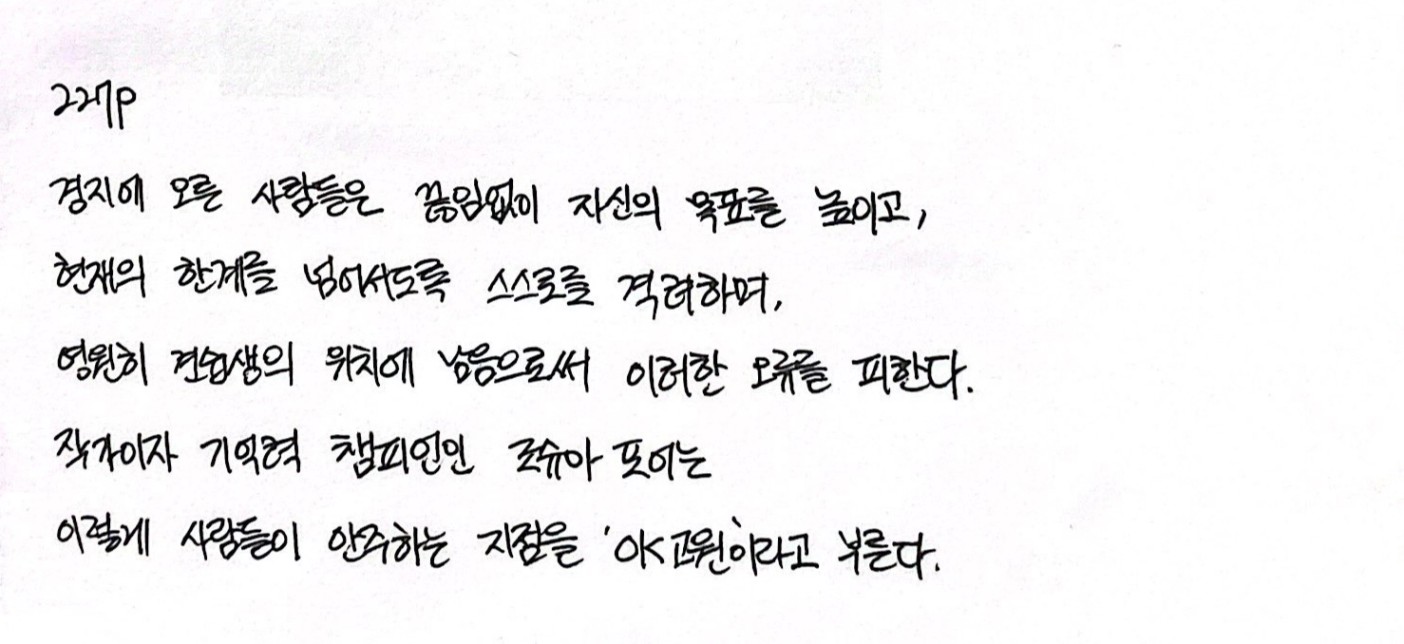 227p
경지에 오른 사람들은 끊임없이 자신의 목표를 높이고,
현재의 한계를 넘어서도록 스스로를 격려하며,
영원히 견습생의 위치에 남음으로써 이러한 오류를 피한다.
작가이자 기억력 챔피언인 조슈아 포어는
이렇게 사람들이 안주하는 지점을 'OK고원'이라고 부른다.